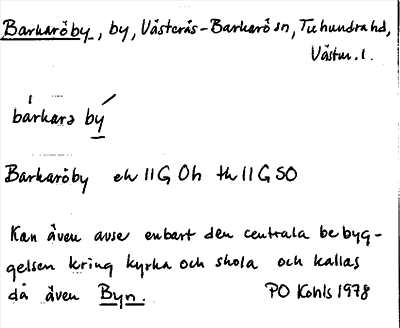 Barkaröby, by, Västerås-Barkarö sn, Tuhundra hd,
Västm. l.
bárkarə bý
Barkaröby ek 11G 0h tk 11G SO
Kan även avse enbart den centrala bebyg-
gelsen kring kyrka och skola och kallas
då även Byn. PO Kohls 1978